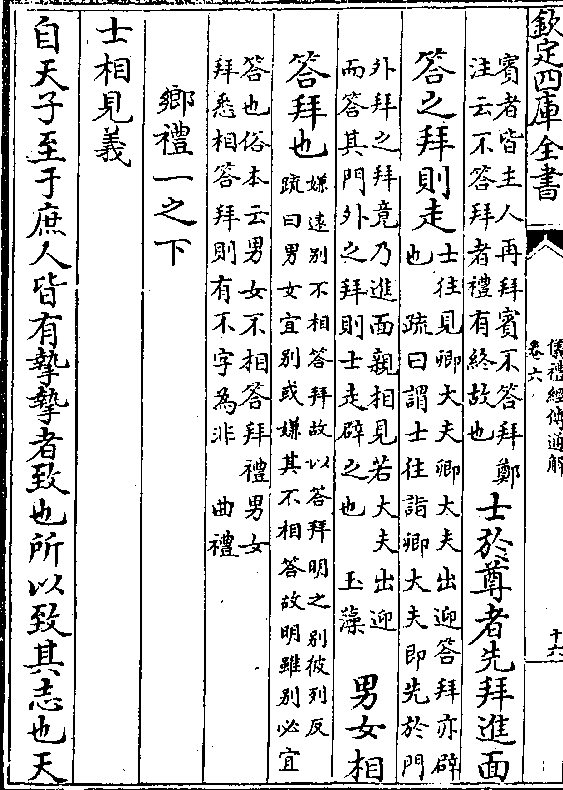 欽定四庫全書
儀禮經傳通解
卷六
十六
賓者皆主人再拜賓不答拜鄭
注云不答拜者禮有終故也
士於尊者先拜進面
答之拜則走
士往見卿大夫卿大夫出迎答拜亦辟
也 疏曰謂士往詣卿大夫即先於門
外拜之拜竟乃進面親相見若大夫出迎
而答其門外之拜則士走辟之也 玉藻
男女相
答拜也
嫌遠別不相答拜故以答拜明之別彼列反
疏曰男女宜別或嫌其不相答故明雖別必宜
答也俗本云男女不相答拜禮男女
拜悉相答拜則有不字為非 曲禮
鄉禮一之下
士相見義
自天子至于庶人皆有摯摯者致也所以致其志也天